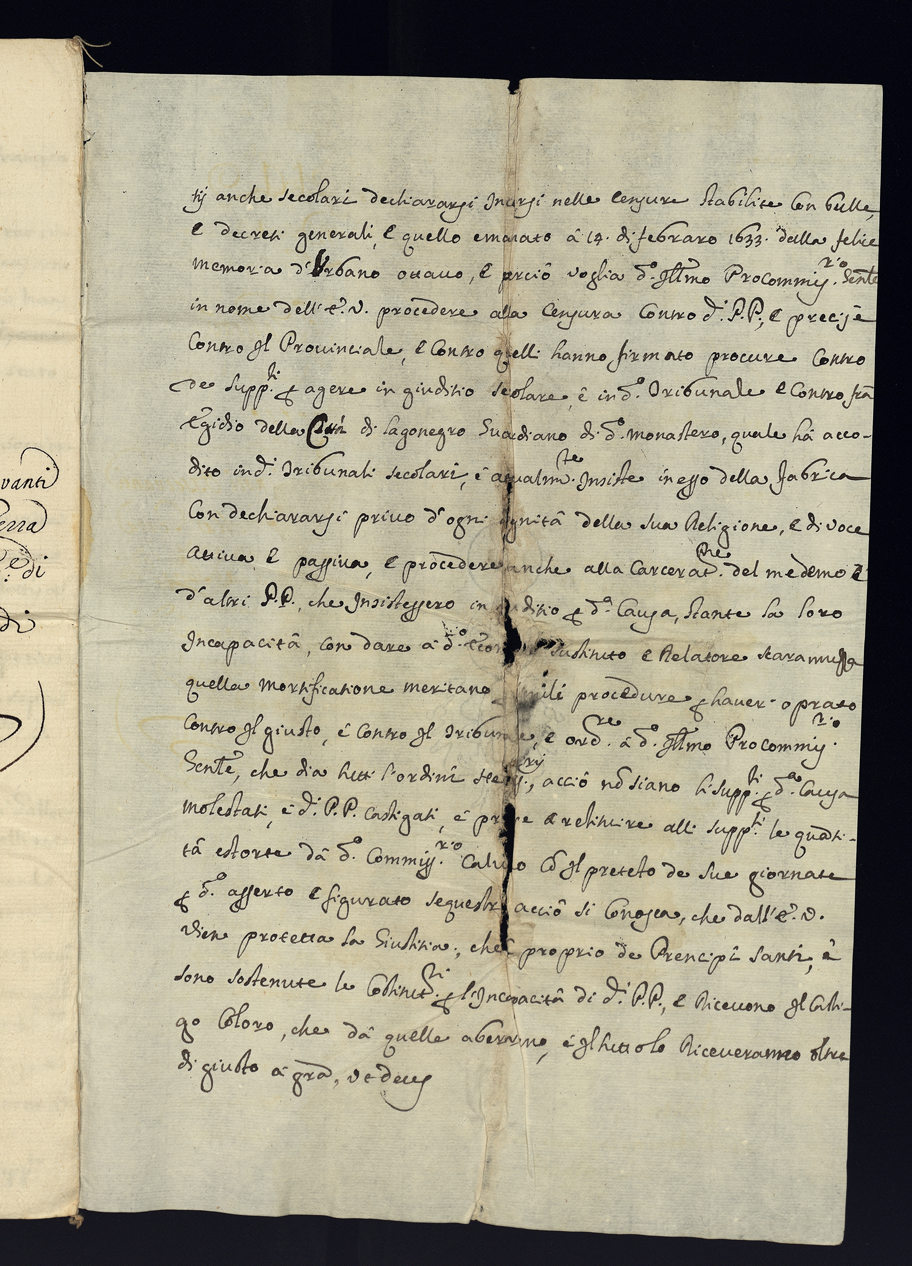 tij anche secolari dechiararsi Incorsi nelle Censure stabilite Con bulle,
e decreti generali, e quello emanato à 14. di febraro 1633. dalla felice
memoria d'Urbano ottavo, e perciò voglia d.º Ill.mo Procommiss.rio Gente
in nome dell'E.V. procedere alla Censura Contro d.i P.P., e precisè
Contro Il Provinciale, e Contro quelli hanno firmato procure Contro
de supp.ti per agere in giuditio secolare, è in d.º Tribunale e Contro frà
Egidio della Città di Lagonegro Guardiano di d.º monastero, quale hà acco-
dito in d.i Tribunali secolari, è atualm.te Insiste in esso della fabrica
Con dechiararsi privo d'ogni dignità della sua Religione, e di voce
attiva, e passiva, e procedere anche alla Carcerat.ne del medemo è
d'altri P.P., che Insistessero in giuditio per d.ª Causa, stante la loro
Incapacità, con dare à d.º sustituto e Relatore scaramuzza
quella mortificatione meritano simili procedure per haver oprato
Contro Il giusto, è Contro Il Tribunale, e ord.re à d.º Ill.mo Procommiss.rio
Gente, che dia tutti l'ordini acciò nō siano li supp.ti per d.ª Causa
molestati, è d.i P.P. castigati, è restituire alli supp.ti le quāti-
tà estorte dà d.º Commiss.rio Calvo Cō Il preteto de sue giornate
per d.º asserto e figurato sequestro acciò si Conosca, che dall'E.V.
vien protetta la Giustitia, che è proprio de Prencipi santi, è
sono sostenute le Costitut.ni per l'Incapacità di d.i P.P., e Ricevono Il Casti-
go Coloro, che dà quelle aberrano, è Il tutto lo Riceveranno oltre
di giusto à gra, ut deus
vanti
erra
di
di